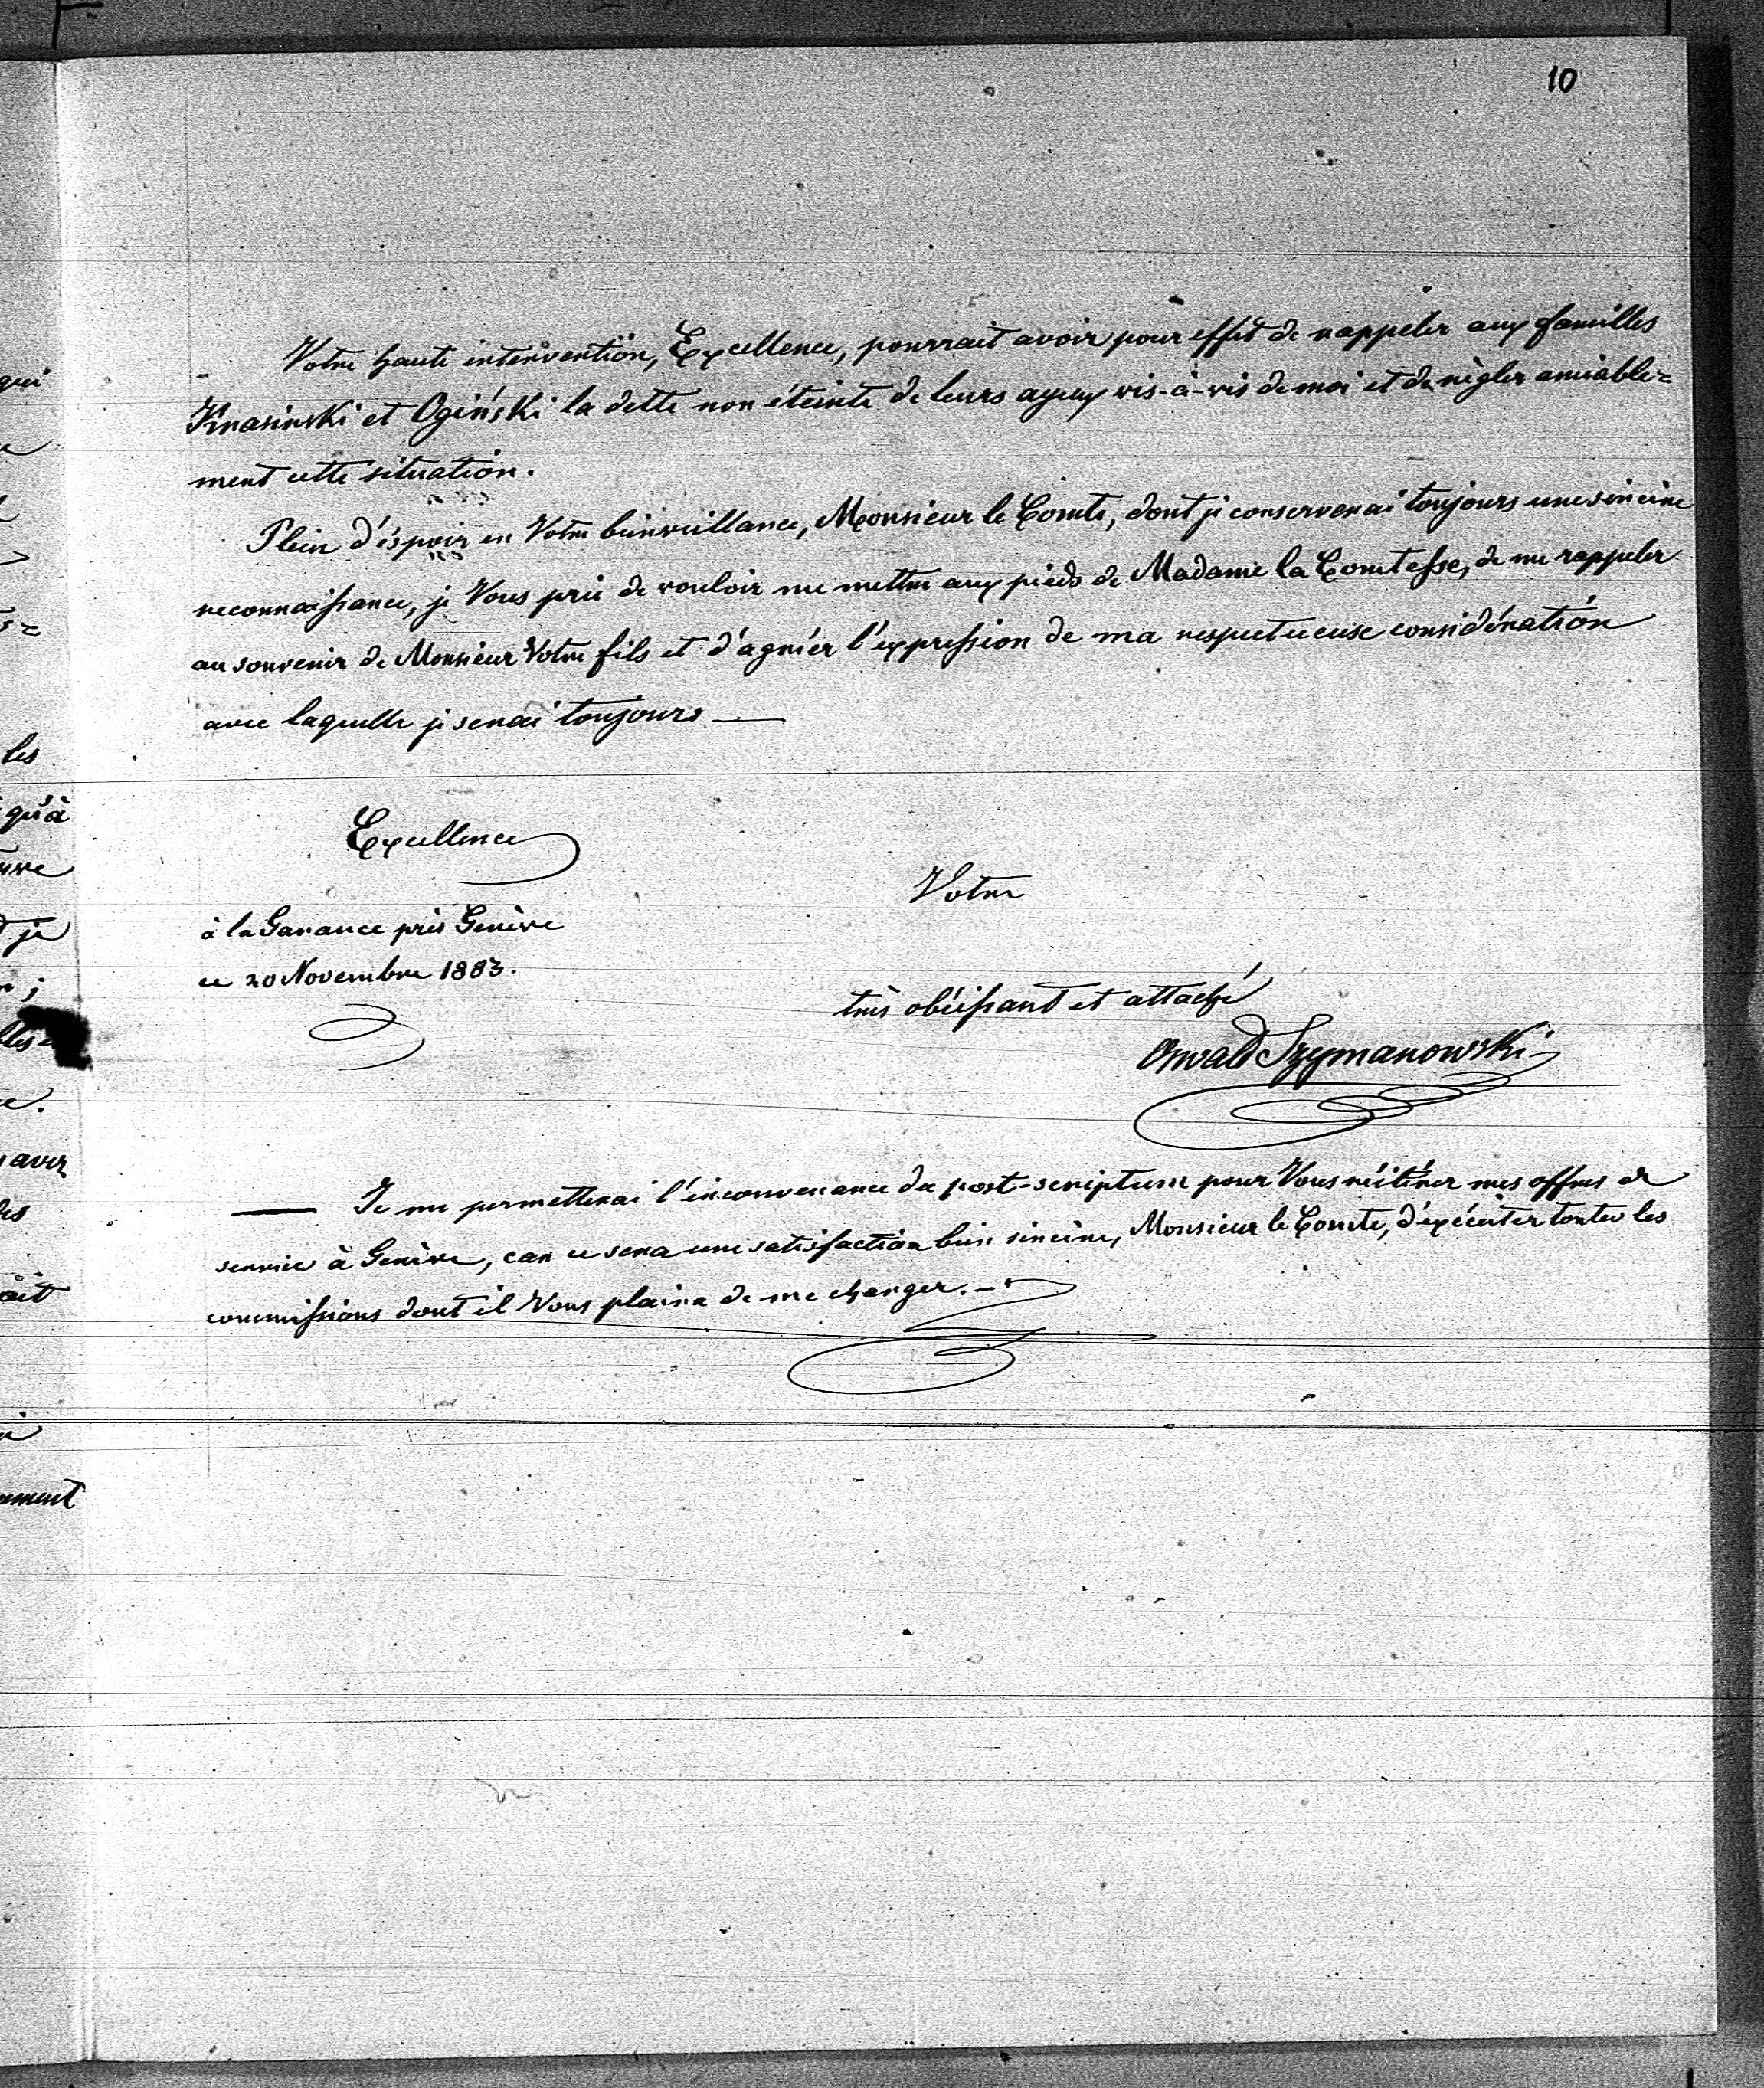 10
Votre haute intervention, Excellence, pourrait avoir pour effet de rappeler aux familles
Krasinski et Ogiński la dette non éteinte de leurs ayeux vis-à-vis de moi et de règler amiable=
ment cette situation.
Plein d'éspoir en Votre bienveillance, Monsieur le Comte, dont je conserverai toujours une sincère
reconnaissance, je Vous prie de vouloir me mettre aux pieds de Madame la Comtesse, de me rappeler
au souvenir de Monsieur Votre fils et d'agréer l'expression de ma respectueuse considération
avec laquelle je serai toujours —
Excellence
Votre
à la Garance près Genève
ce 20 Novembre 1883.
très obéissant et attaché
Oswald Szymanowski
— Je me permetterai l'inconvenance du post-scriptum pour Vous réitérer mes offres de
service à Genève, car ce sera une satisfaction bien sincère, Monsieur le Comte, d'éxécuter toutes les
commissions dont il Vous plaira de me charger. —
qui
les
qu'à
je
;
avez
ait